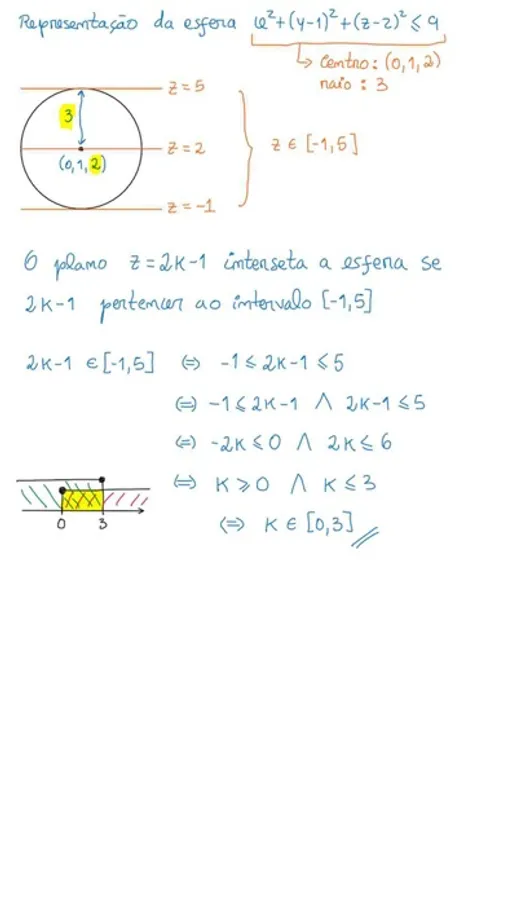 Representação da esfera x²+(y-1)²+(z-2)²⩽9
↳ Centro: (0,1,2)
raio: 3
z=5
3
z=2
z ∈ [-1,5]
(0,1,2)
z=-1
O plano z=2k-1 interseta a esfera se
2k-1 pertencer ao intervalo [-1,5]
2k-1 ∈[-1,5] ⇔ -1⩽2k-1⩽5
⇔ -1⩽2k-1 ∧ 2k-1⩽5
⇔ -2k⩽0 ∧ 2k⩽6
⇔ k⩾0 ∧ k⩽3
0 3
⇔ k∈[0,3]